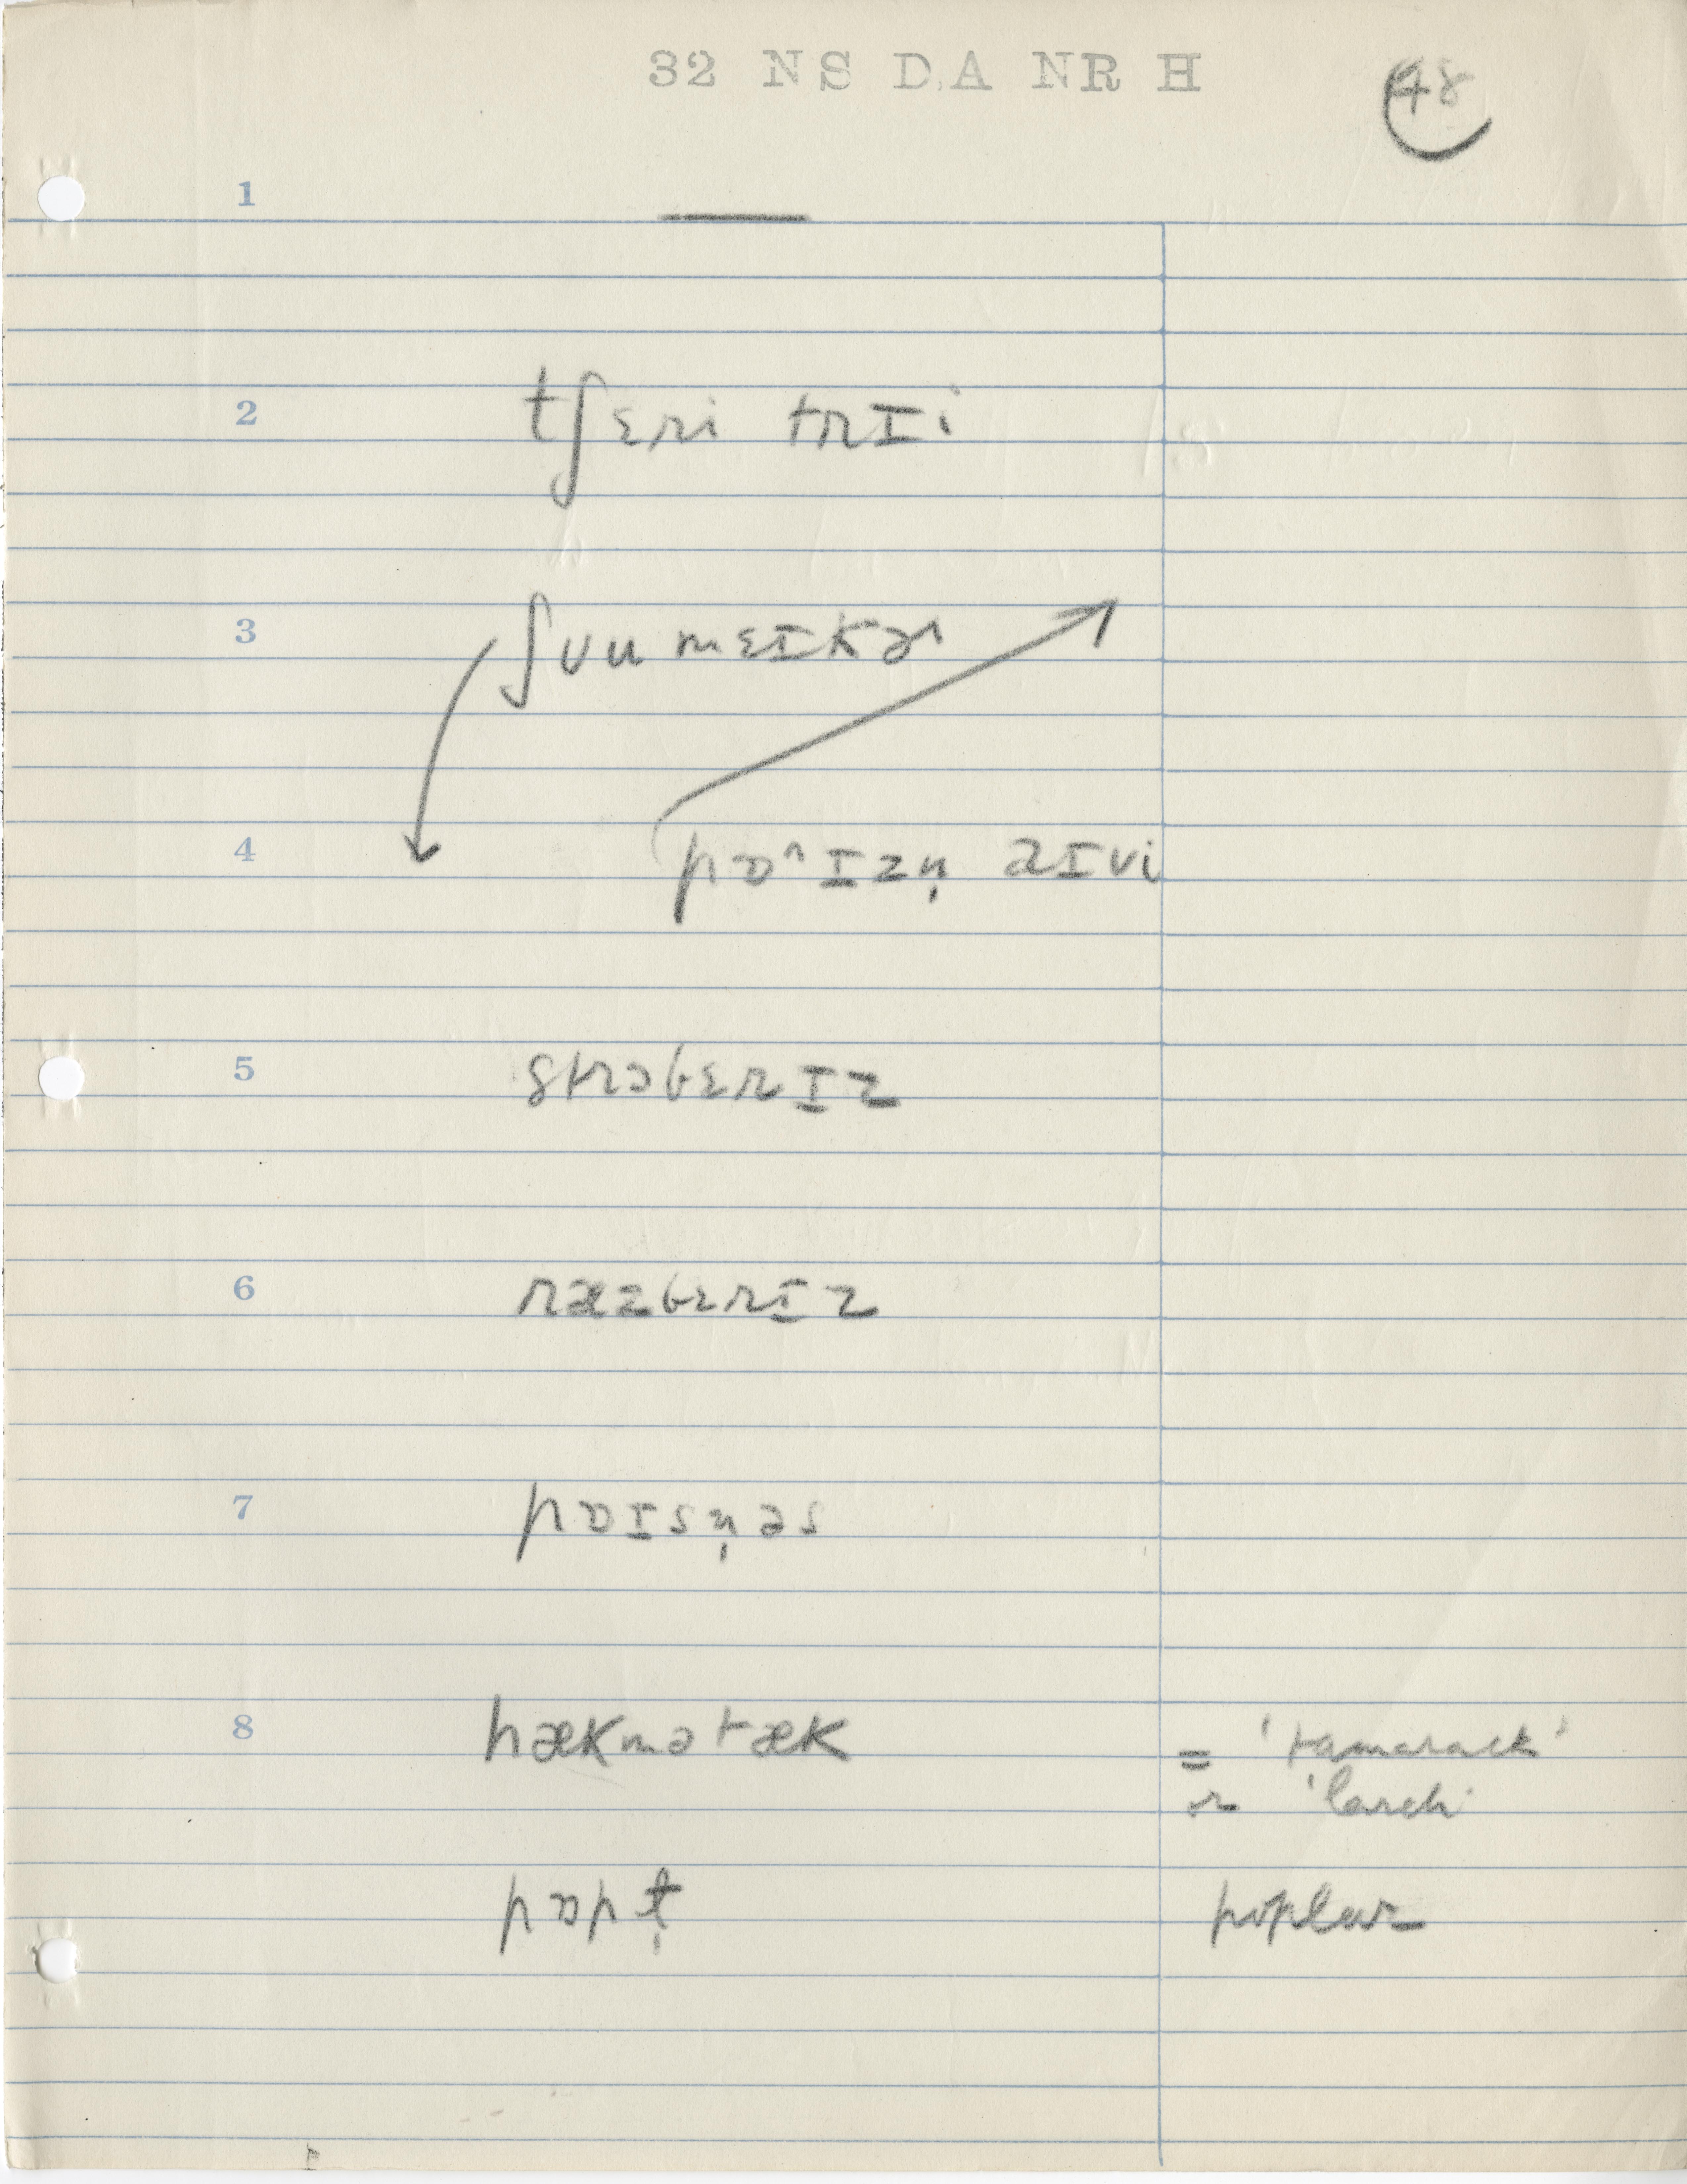 32 NS DA NR H
48
1 —
2 tʃɛri trIi
3 ʃʊu mɛIkɚ
4 pɒ^Izn̩ aIvi
5 strɔbɛrIz
6 ræzbɛrIz
7 pɒIsn̩əs
8 hækmətæk = 'tamarack'
or 'larch'
pɒpɫ̩ poplar